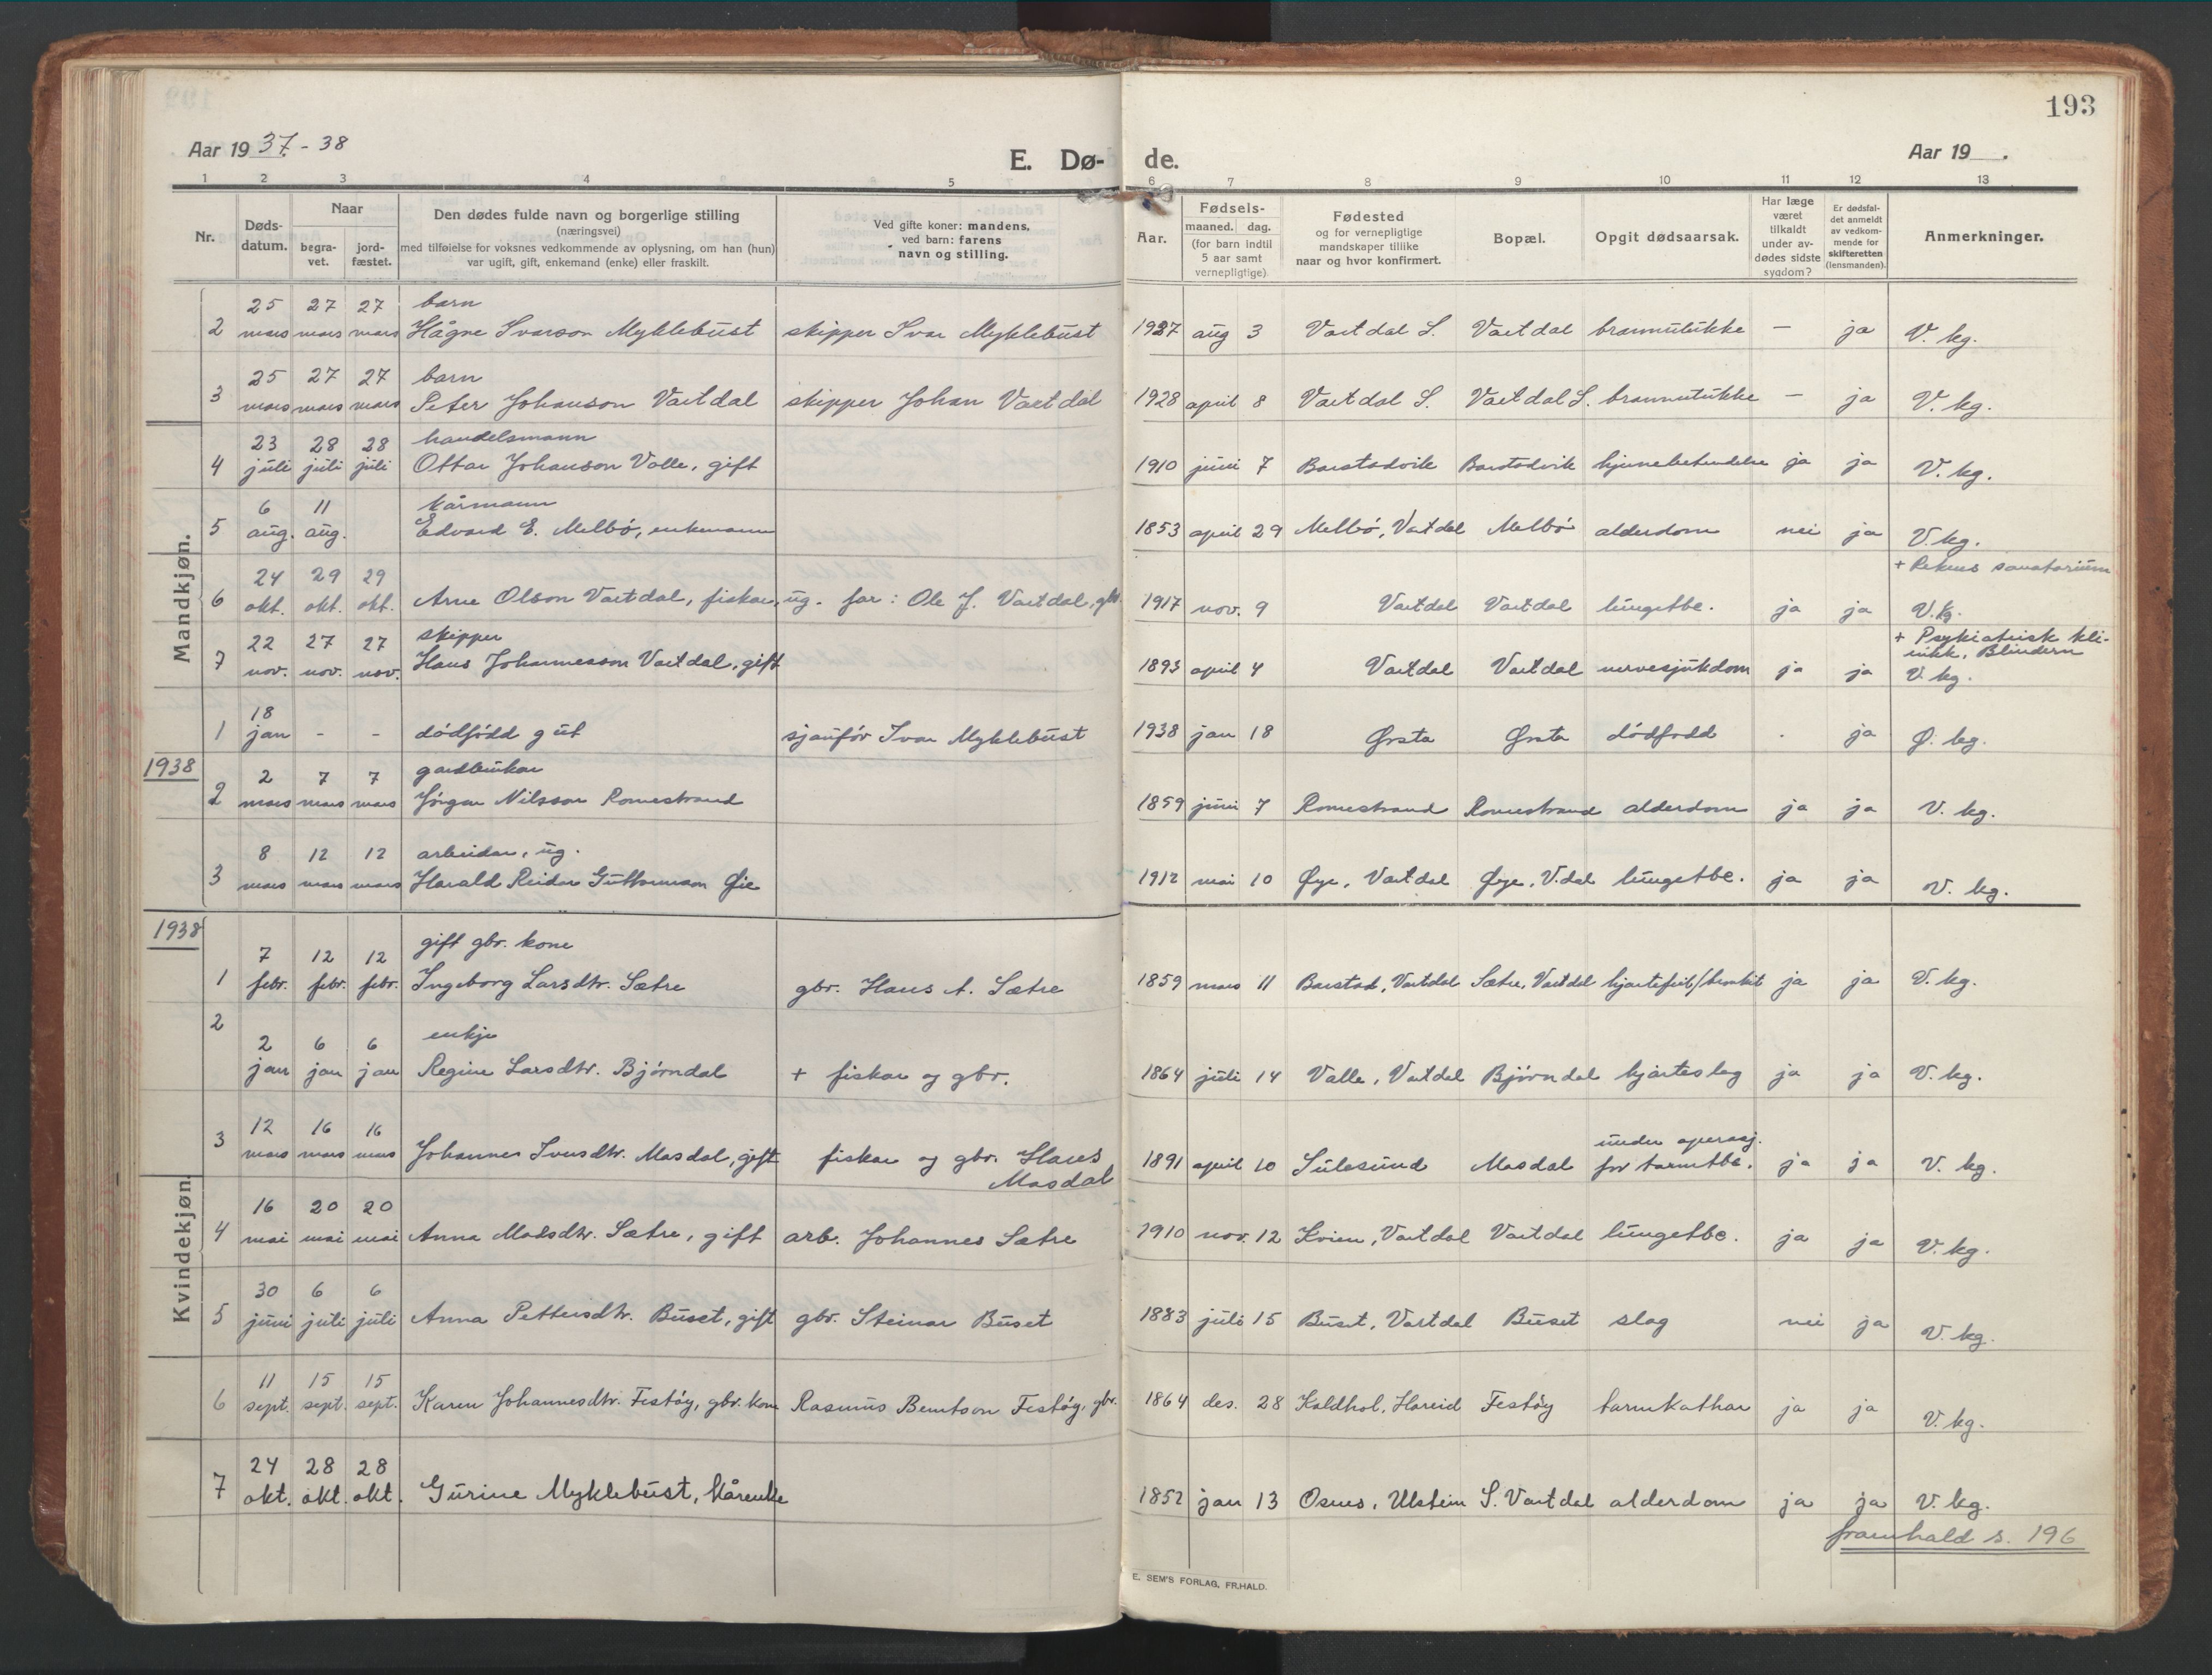 193
Aar 1937-38
E. Dø- de.
Aar 19 .
1 2 3 4 5 6 7 8 9 10 11 12 13
Nr.
Døds-
datum.
Naar
begra-
vet.
jord-
fæstet.
Den dødes fulde navn og borgerlige stilling
(næringsvei)
med tilføielse for voksnes vedkommende av oplysning, om han (hun)
var ugift, gift, enkemand (enke) eller fraskilt.
Ved gifte koner: mandens,
ved barn: farens
navn og stilling.
Aar.
Fødsels-
maaned. dag.
(for barn indtil
5 aar samt
vernepligtige)
Fødested
og for vernepligtige
mandskaper tillike
naar og hvor konfirmert.
Bopæl.
Opgit dødsaarsak.
Har læge
været
tilkaldt
under av-
dødes sidste
sygdom?
Er dødsfal-
det anmeldt
av vedkom-
mende for
skifteretten
(lensmanden).
Anmerkninger.
Mandkjøn.
25 27 27 barn
2 mars mars mars Hågne Ivarson Myklebust skipper Ivar Myklebust 1927 aug 3 Vartdal S. Vartdal brannulukke — ja V. kg.
25 27 27 barn
3 mars mars mars Peter Johanson Vartdal skipper Johan Vartdal 1928 april 8 Vartdal S. Vartdal S. brannulukke — ja V. kg.
23 28 28 handelsmann
4 juli juli juli Ottar Johanson Valle, gift 1910 juni 7 Barstadvik Barstadvik hjinnebetendelse ja ja V. kg.
6 11 kårmann
5 aug. aug. Edvard E. Melbø, enkemann 1853 april 29 Melbø, Vartdal Melbø alderdom nei ja V. kg.
24 29 29 + Reknes sanatorium
6 okt. okt. okt. Arne Olson Vartdal, fiskar, ug. far: Ole J. Vartdal, gbr. 1917 nov. 9 Vartdal Vartdal lungetbc. ja ja V. kg.
22 27 27 skipper + Psykiatrisk kli-
nikk, Blindern
7 nov. nov. nov. Hans Johannesson Vartdal, gift 1893 april 4 Vartdal Vartdal nervesjukdom ja ja V. kg.
18
1 jan - - dødfødd gut sjauför Ivar Myklebust 1938 jan 18 Ørsta Ørsta dødfødd . ja Ø. kg.
1938
2 7 7 gardbrukar
2 mars mars mars Jørgen Nilsson Romestrand 1859 juni 7 Romestrand Romestrand alderdom ja ja V. kg.
8 12 12 arbeidar, ug.
3 mars mars mars Harald Reidar Guttormson Øie 1912 mai 10 Øye, Vartdal Øye, V.dal lungetbc. ja ja V. kg.
Kvindekjøn.
1938
7 12 12 gift gbr. kone
1 febr. febr. febr. Ingeborg Larsdtr. Sætre gbr. Hans A. Sætre 1859 mars 11 Barstad, Vartdal Sætre, Vartdal hjartefeil/bronkit ja ja V. kg.
2
2 6 6 enkje
jan jan jan Regine Larsdtr. Bjørndal + fiskar og gbr. 1864 juli 14 Valle, Vartdal Bjørndal hjarteslag ja ja V. kg.
12 16 16 under operasj.
3 mars mars mars Johannes Ivarsdtr. Masdal, gift fiskar og gbr. Hans
Masdal 1891 april 10 Sulesund Masdal for tarmtbc. ja ja V. kg.
16 20 20
4 mai mai mai Anna Madsdtr. Sætre, gift arb. Johannes Sætre 1910 nov. 12 Kvien, Vartdal Vartdal lungetbc. ja ja V. kg.
30 6 6
5 juni juli juli Anna Pettersdtr. Buset, gift gbr. Steinar Buset 1883 juli 15 Buset, Vartdal Buset slag nei ja V. kg.
11 15 15
6 sept. sept. sept. Karen Johannesdtr. Festøy, gbr. kone Rasmus Berntson Festøy, gbr. 1864 des. 28 Kaldhol, Hareid Festøy tarmkathar ja ja V. kg.
24 28 28
7 okt. okt. okt. Gurine Myklebust, kårenkje 1852 jan 13 Osnes, Ulstein S. Vartdal alderdom ja ja V. kg.
framhald s. 196
E. SEM'S FORLAG, FR.HALD.